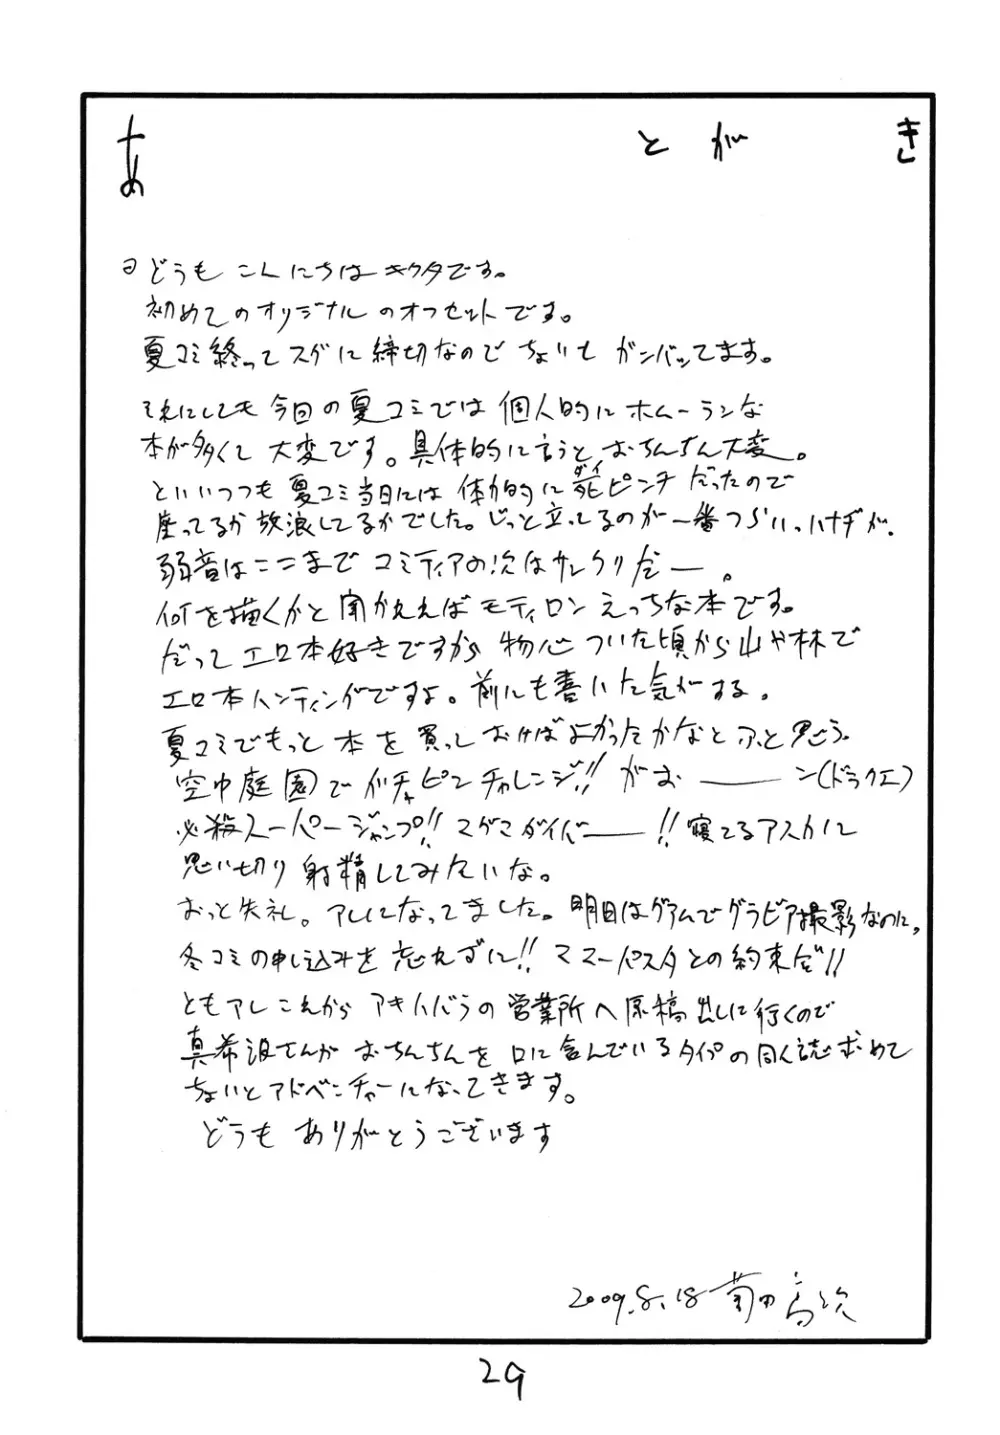 あとがき
どうも こんにちは キクタです。
初めてのオリジナルのオフセットです。
夏コミ終ってスグに締切なので ちょいと ガンバッてます。
それにしても今回の夏コミでは個人的にホームーランな
本が多くて大変です。具体的に言うと おちんちん大変。
といいつつも夏コミ当日には体力的に死ピンチだったので
ダイ
座ってるか放浪してるかでした。じっと立ってるのが一番つらい。ハナヂが。
弱音はここまで コミティアの次はサンクリだー。
何を描くかと聞かれればモティロンえっちな本です。
だってエロ本好きですから 物心ついた頃から山や林で
エロ本ハンティングですよ。前にも書いた気がする。
夏コミでもっと本を買っておけばよかったかなとふと思う。
空中庭園でガチャピンチャレンジ!! がお――ン(ドラクエ)
必殺スーパージャンプ!! マグマダイバー――!! 寝てるアスカに
思い切り射精してみたいな。
おっと失礼。アレになってました。明日はグアムでグラビア撮影なのに。
冬コミの申し込みを忘れずに!! ママーパスタとの約束だ!!
ともアレこれからアキハバラの営業所へ原稿出しに行くので
真希波さんが おちんちんを口に含んでいるタイプの同人誌求めて
ちょいとアドベンチャーになってきます。
どうも ありがとうございます
2009.8.18 菊田高次
29